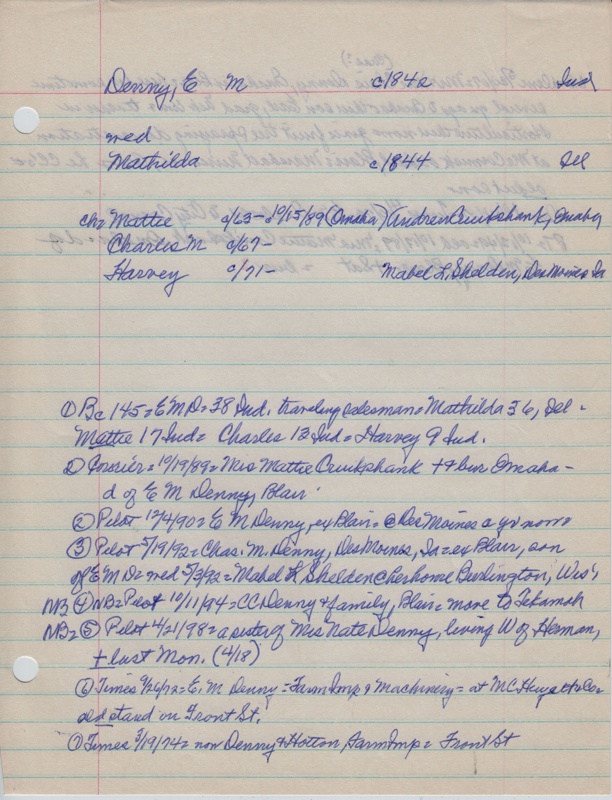 Denny, E M c1842 Ind
med
Mathilda c1844 Ill
ch: Mattie c/63- d10/15/89 (Omaha) Andrew Cruikshank, Omaha
Charles M c/67-
Harvey c/71- Mabel L. Shelden, Des Moines Ia
① Bc 145= E M D= 38 Ind. traveling salesman= Mathilda 36, Ill.
Mattie 17 Ind= Charles 13 Ind= Harvey 9 Ind.
② Courier= 10/19/89= Mrs Mattie Cruikshank + + bur Omaha-
d of E M Denny, Blair
② Pilot 12/4/90= E M Denny, ex Blair= @ Des Moines a yr now
③ Pilot 5/19/92= Chas. M. Denny, Des Moines, Ia= ex Blair, son
of E M D= med 5/3/92= Mabel L Shelden @ her home Burlington, Wis.
NB ④ NB= Pilot 10/11/94= CC Denny + family, Blair= move to Tekamah
NB= ⑤ Pilot 4/21/98= a sister of Mrs Nate Denny, living W of Herman,
+ last Mon. (4/18)
⑥ Times 9/26/72= E. M Denny= Farm Imp & Machinery= at MC Huyett & Co
old stand on Front St.
⑦ Times 3/19/74= now Denny & Hotton Farm Imp= Front St